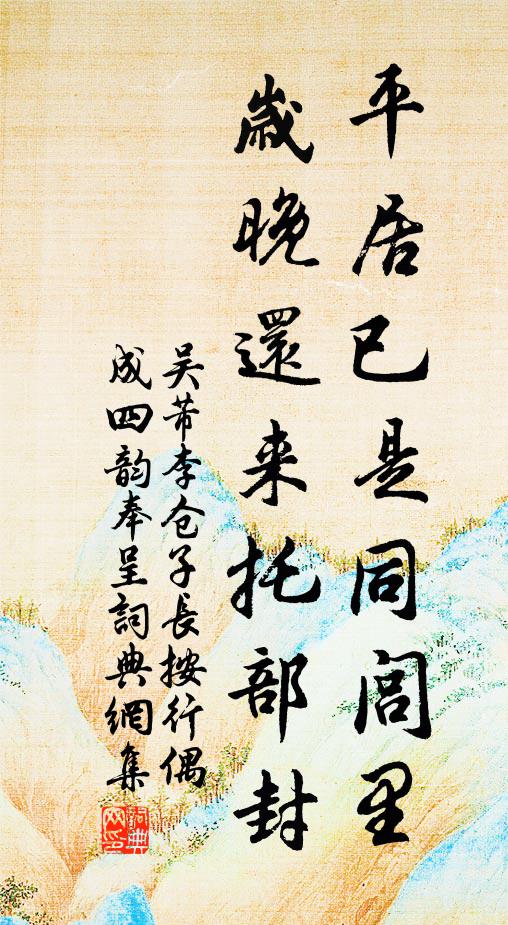 平居已是同闾里
歲晚還来托部封
吴芾李仓子長按行偶
成四韵奉呈詞典網集
詞典
网印